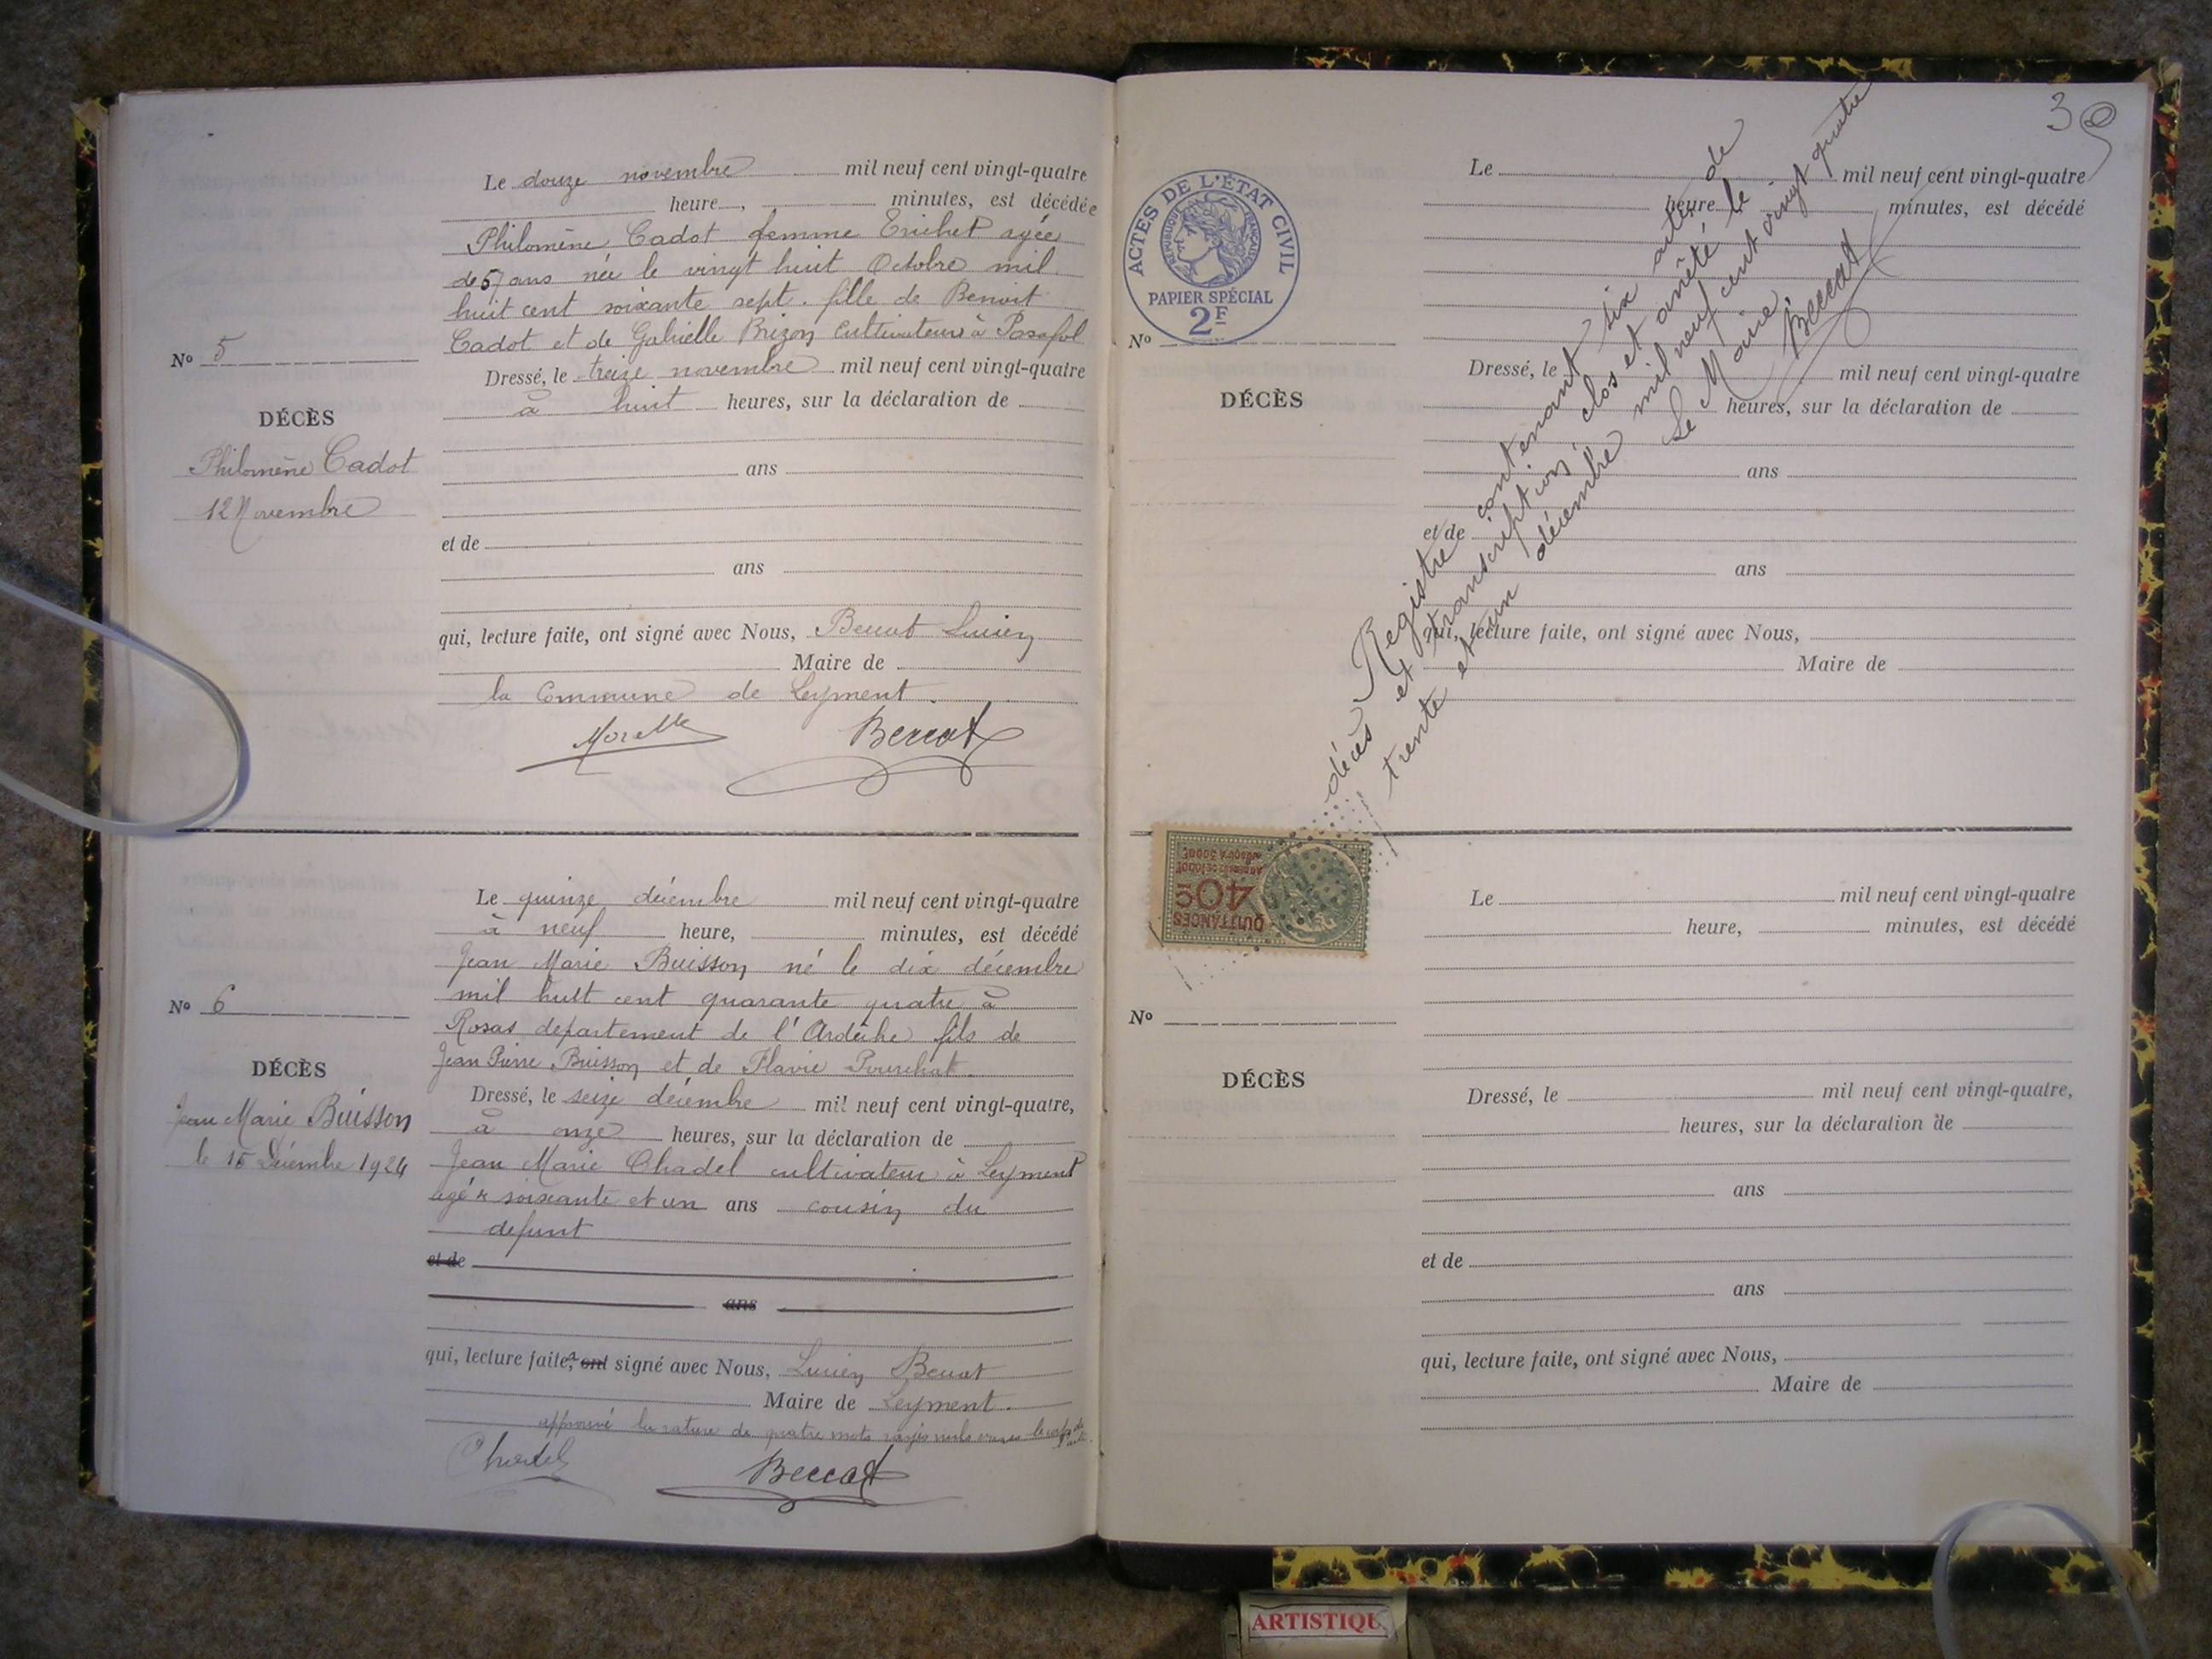 Le douze novembre mil neuf cent vingt-quatre
heure, minutes, est décédée
Philomène Cadot femme agée
de 57 ans née le vingt huit Octobre mil
huit cent soixante sept. fille de Benoit
Cadot et de Gabrielle Brizon Cultivateurs à
Nº 5
Dressé, le treize novembre mil neuf cent vingt-quatre
à huit heures, sur la déclaration de
DÉCÈS
Philomène Cadot
12 Novembre
ans
et de
ans
qui, lecture faite, ont signé avec Nous, Beccat Lucien
Maire de
la Commune de Leyment
Beccat
Le quinze décembre mil neuf cent vingt-quatre
à neuf heure, minutes, est décédé
Jean Marie Buisson né le dix décembre
mil huit cent quarante quatre à
Rosas departement de l'Ardèche fils de
Jean Pierre Buisson et de Flavie
Nº 6
DÉCÈS
Jean Marie Buisson
le 15 Décembre 1924
Dressé, le seize décembre mil neuf cent vingt-quatre,
à onze heures, sur la déclaration de
Jean Marie Chadel cultivateur à Leyment
agé de soixante et un ans cousin du
defunt
et de
ans
qui, lecture faite, a ont signé avec Nous, Lucien Beccat
Maire de Leyment.
approuvé la rature de quatre mots rayés nuls
Chadel Beccat
3
ACTES DE L'ÉTAT CIVIL
RÉPUBLIQUE FRANÇAISE
PAPIER SPÉCIAL
2F
Le mil neuf cent vingt-quatre
heure minutes, est décédé
Nº
DÉCÈS
Dressé, le mil neuf cent vingt-quatre
heures, sur la déclaration de
ans
et de
ans
qui, lecture faite, ont signé avec Nous,
Maire de
Registre contenant six actes de
décès et transcriptions, clos et arrêté le
trente et un décembre mil neuf cent vingt quatre
Le Maire
Beccat
QUITTANCES
40c
Le mil neuf cent vingt-quatre
heure, minutes, est décédé
Nº
DÉCÈS
Dressé, le mil neuf cent vingt-quatre,
heures, sur la déclaration de
ans
et de
ans
qui, lecture faite, ont signé avec Nous,
Maire de
ARTISTIQU